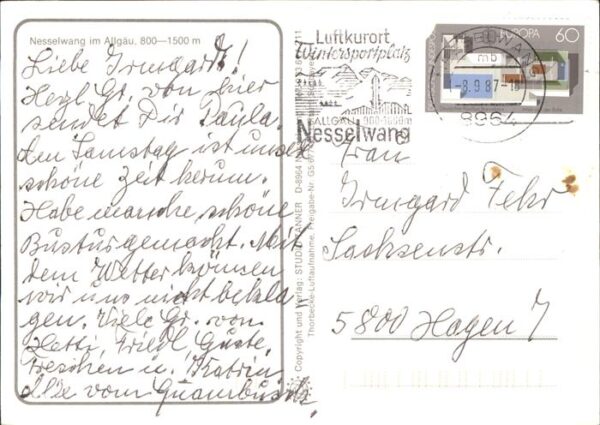 Nesselwang im Allgäu, 800—1500 m
Liebe Irmgard!
Herzl Gr. von hier
sendet Dir Paula.
Am Samstag ist unsere
schöne Zeit herum.
Habe manche schöne
Bustur gemacht. Mit
dem Wetter können
wir uns nicht bekla-
gen. Viele Gr. von
Hetti, Friedl, Guste,
u. Katrin
Alle vom
Copyright und Verlag: STUDIO TANNER D-8964
Thorbecke-Luftaufnahme, Freigabe-Nr.
Luftkurort
Wintersportplatz
ALLGÄU 900-1600m
Nesselwang
NESSELWANG
mb
-8.9.87-
8964
EUROPA 60
Frau
Irmgard Fehr
Sachsenstr.
5800 Hagen 7